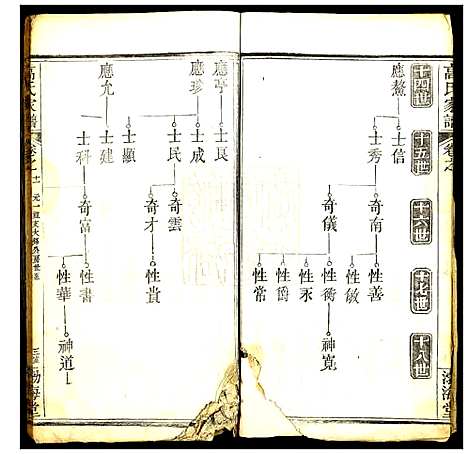 高氏家譜
卷之一
渤海堂
十四世
十五世
十六世
十七世
十八世
應鰲
士信
士秀
奇南
奇儀
性善
性敏
性衡
性汞
性爵
性常
神寬
應亨
士良
應珍
士成
士民
奇雲
奇才
性貴
應允
士顯
士建
士科
奇富
性書
性華
神道
高氏家譜
卷之一
渤海堂